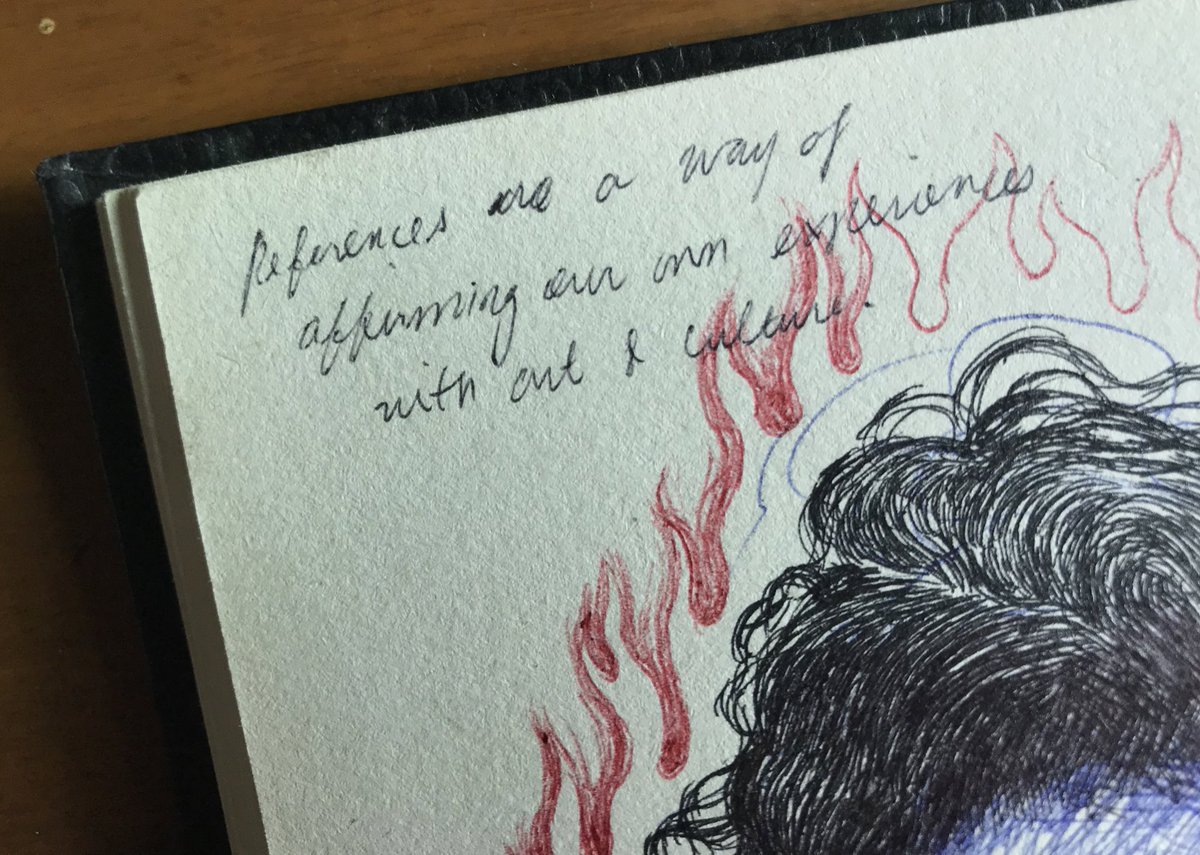 References are a way of
affirming our own experiences
with art & culture.